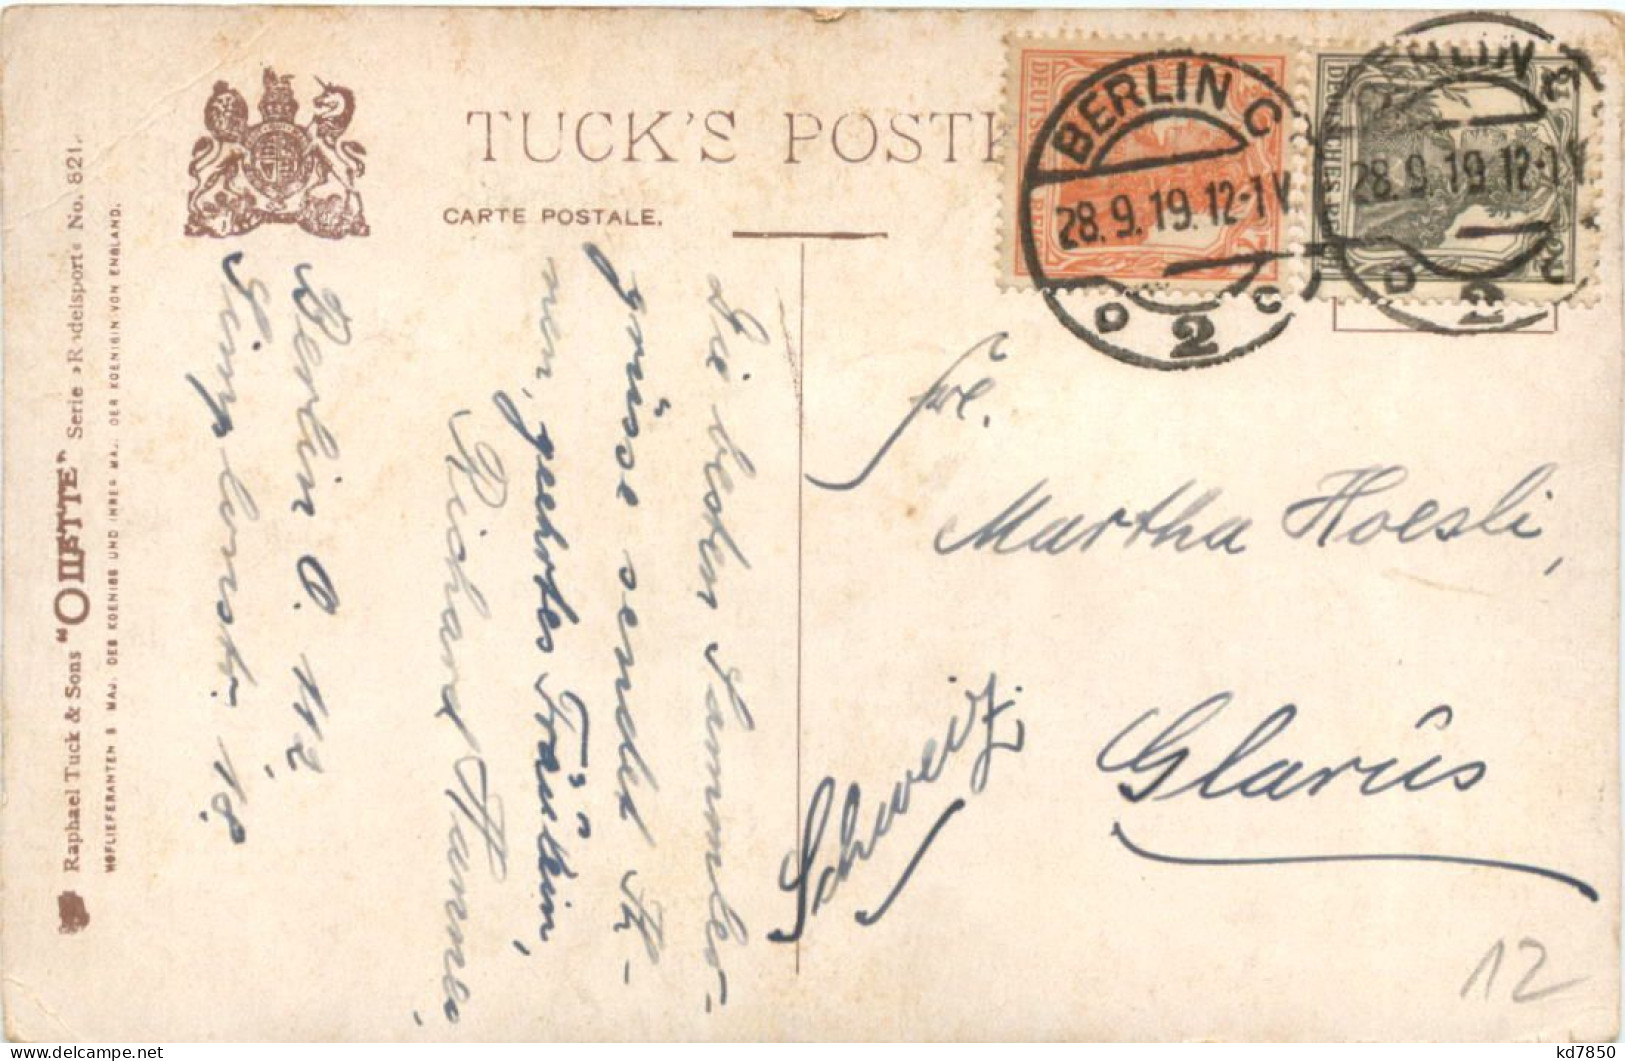 TUCK'S POST
CARTE POSTALE.
Raphael Tuck & Sons "OILETTE" Serie »Rodelsport« No. 821.
HOFLIEFERANTEN S MAJ. DES KOENIGS UND IHRER MAJ. DER KOENIGIN VON ENGLAND.
BERLIN C
28.9.19.12-1V
2
C
BERLIN
28.9.19.12-1V
2
C
DEUTSCHES
Die besten Sammler-
grüsse sendet Ih-
nen, geehrtes Fräulein,
Richard
Berlin O. 112
Simplonstr. 18
Frl.
Martha Hoesli,
Glarus
Schweiz.
12
kd7850